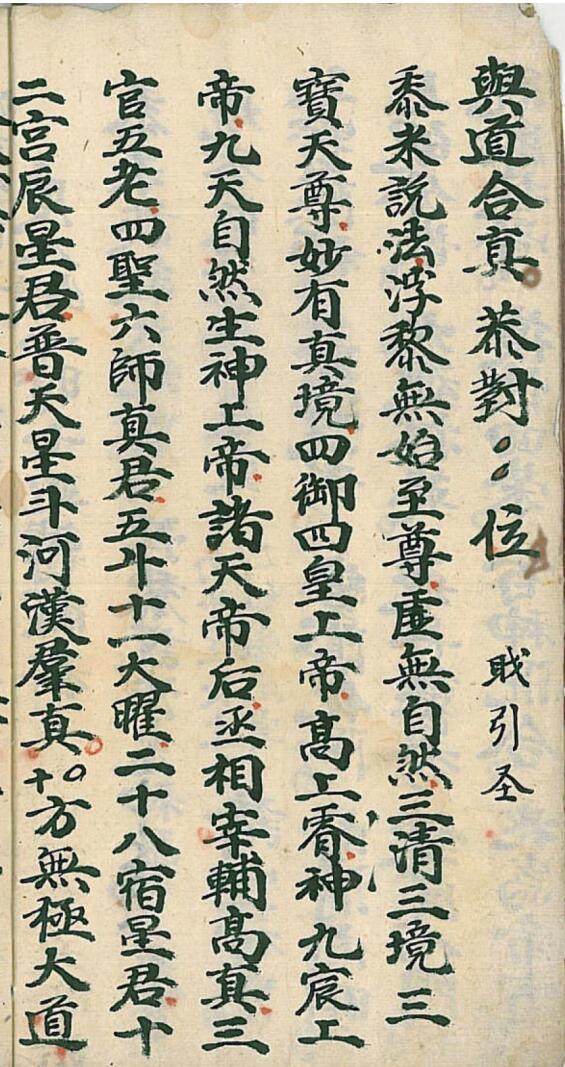 與道合真 恭對::位 戝引圣
黍米說法浮黎無始至尊虛無自然三清三境三
寶天尊妙有真境四御四皇上帝高上霄神九宸上
帝九天自然生神上帝諸天帝后丞相宰輔高真三
官五老四聖六師真君五斗十一大曜二十八宿星君十
二宮辰星君普天星斗河漢羣真十方無極大道